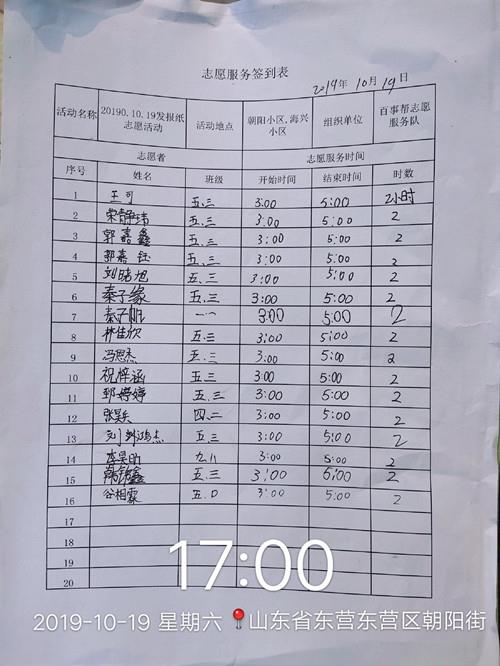 志愿服务签到表
2019年10月19日
活动名称 20190.10.19发报纸志愿活动 活动地点 朝阳小区,海兴小区 组织单位 百事帮志愿服务队
志愿者 志愿服务时间
序号 姓名 班级 开始时间 结束时间 时数
1 王可 五.三 3:00 5:00 2小时
2 荣静玮 五.三 3:00 5:00 2
3 郭嘉鑫 五.三 3:00 5:00 2
4 郭嘉钰 五.三 3:00 5:00 2
5 刘晓旭 五.三 3:00 5:00 2
6 秦子缘 五.三 3:00 5:00 2
7 秦子 一一 3:00 5:00 2
8 林佳欣 五.三 3:00 5:00 2
9 冯思杰 五.三 3:00 5:00 2
10 祝梓涵 五.三 3:00 5:00 2
11 郅婷婷 五.三 3:00 5:00 2
12 张昊 四.二 3:00 5:00 2
13 刘鸿杰 五.三 3:00 5:00 2
14 李昊 九八 3:00 5:00 2
15 锦鑫 五.三 3:00 5:00 2
16 谷相霖 五.口 3:00 5:00 2
17
18
19
20
17:00
2019-10-19 星期六 山东省东营东营区朝阳街